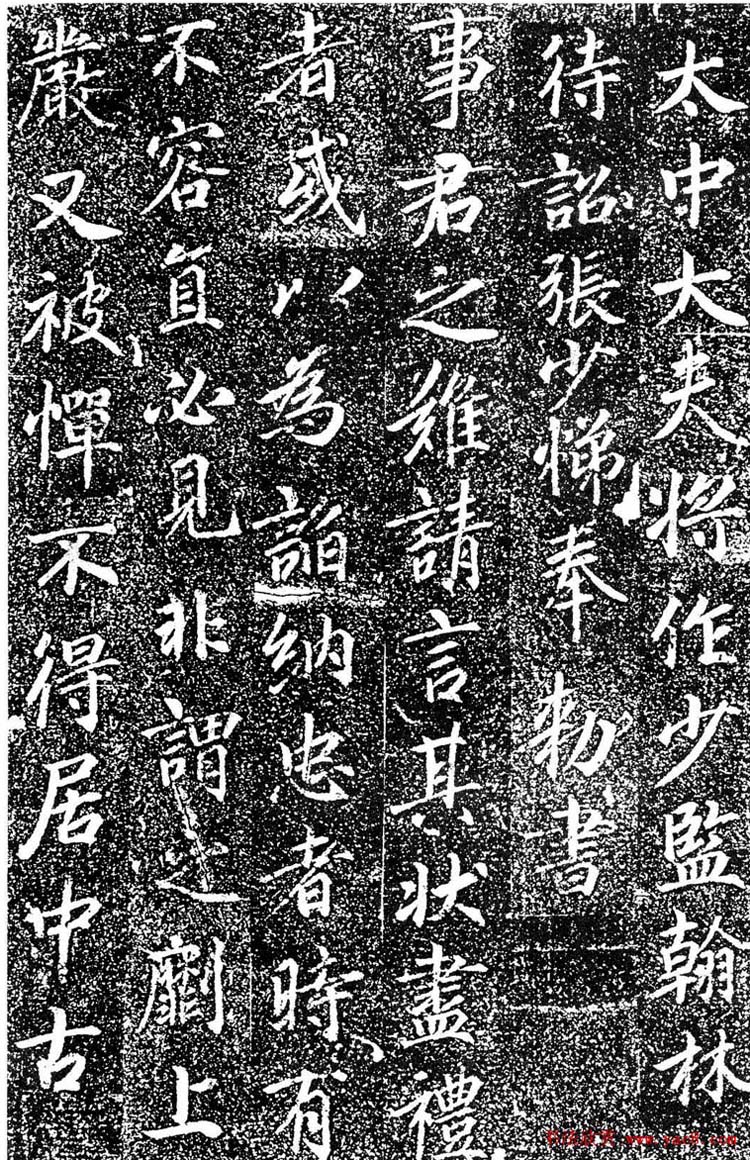 太中大夫將作少監翰林
待詔張少悌奉敕書
事君之難請言其狀盡禮
者或以為諂納忠者時有
不容直必見非謂之劘上
嚴又被憚不得居中古